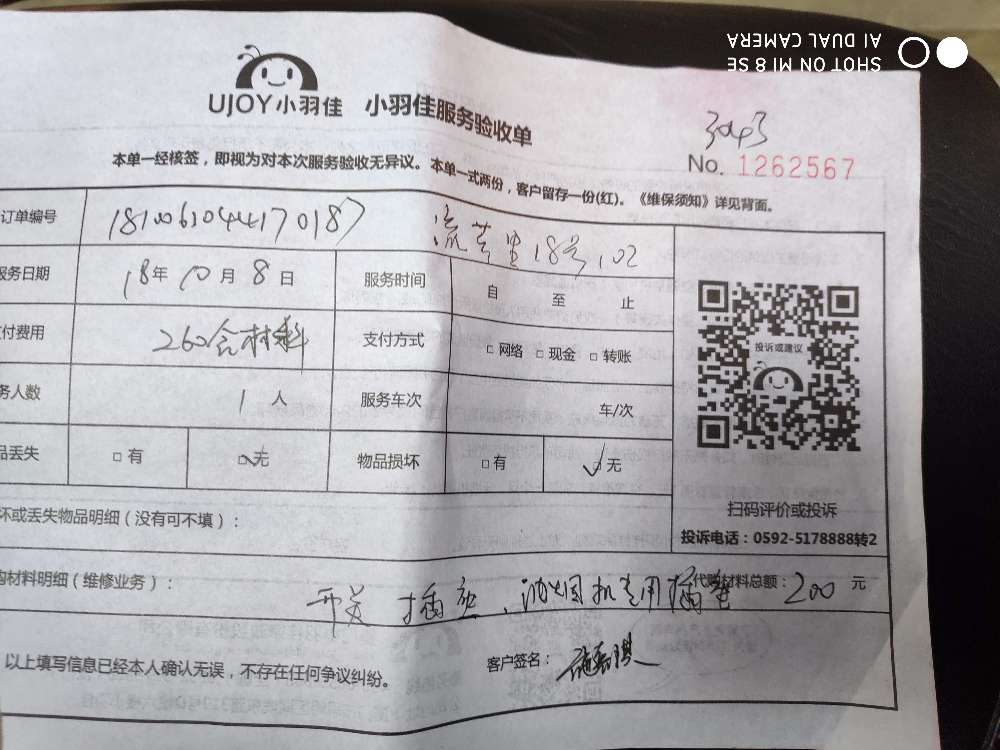 SHOT ON MI 8 SE
AI DUAL CAMERA
UJOY小羽佳 小羽佳服务验收单
3043
No. 1262567
本单一经核签，即视为对本次服务验收无异议。本单一式两份，客户留存一份(红)。《维保须知》详见背面。
订单编号 1810061044170187 18号102
服务日期 18年10月8日 服务时间 自 至 止
付费用 260含材料 支付方式 □网络 □现金 □转账
务人数 1人 服务车次 车/次
品丢失 □有 □无 物品损坏 □有 □无
投诉或建议
扫码评价或投诉
投诉电话：0592-5178888转2
坏或丢失物品明细（没有可不填）：
购材料明细（维修业务）： 开关 插座、油烟机专用插座 代购材料总额：200元
以上填写信息已经本人确认无误，不存在任何争议纠纷。 客户签名：